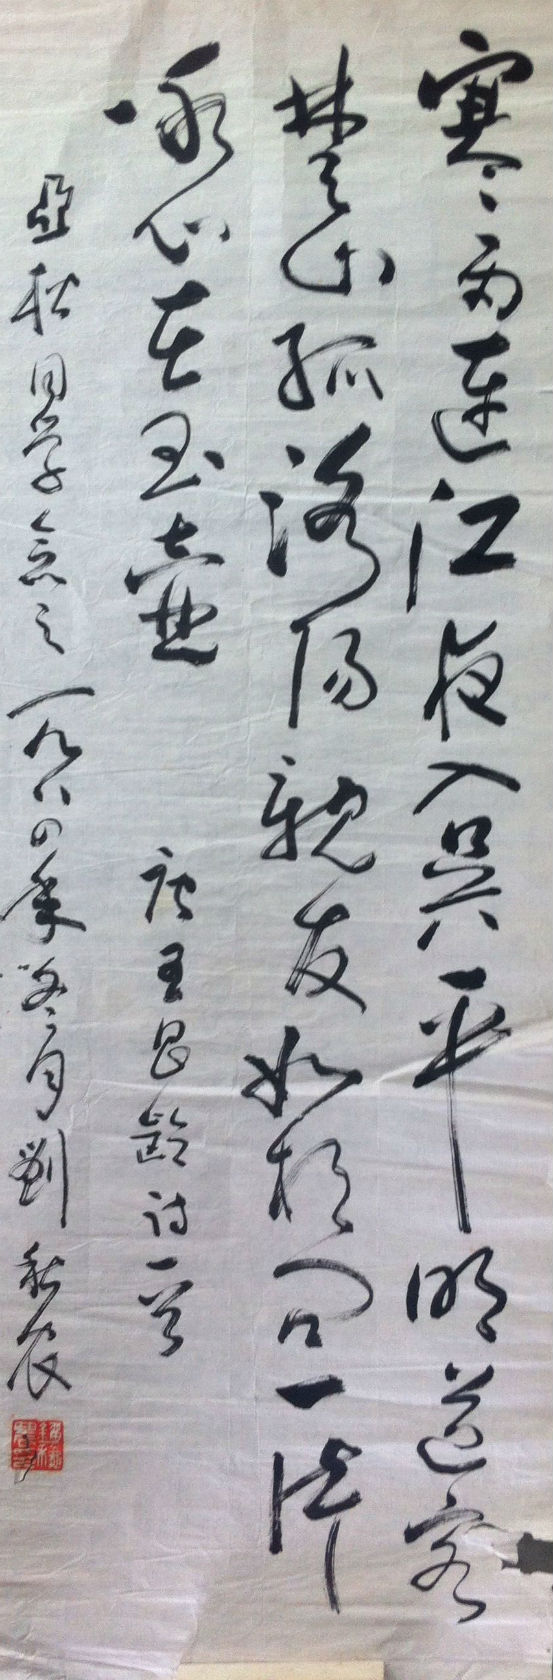 寒雨連江夜入吴平明送客
楚山孤洛陽親友如相问一片
冰心在玉壺 唐王昌齡诗一首
亞秋同学念之 一九八四年冬月 劉秋农